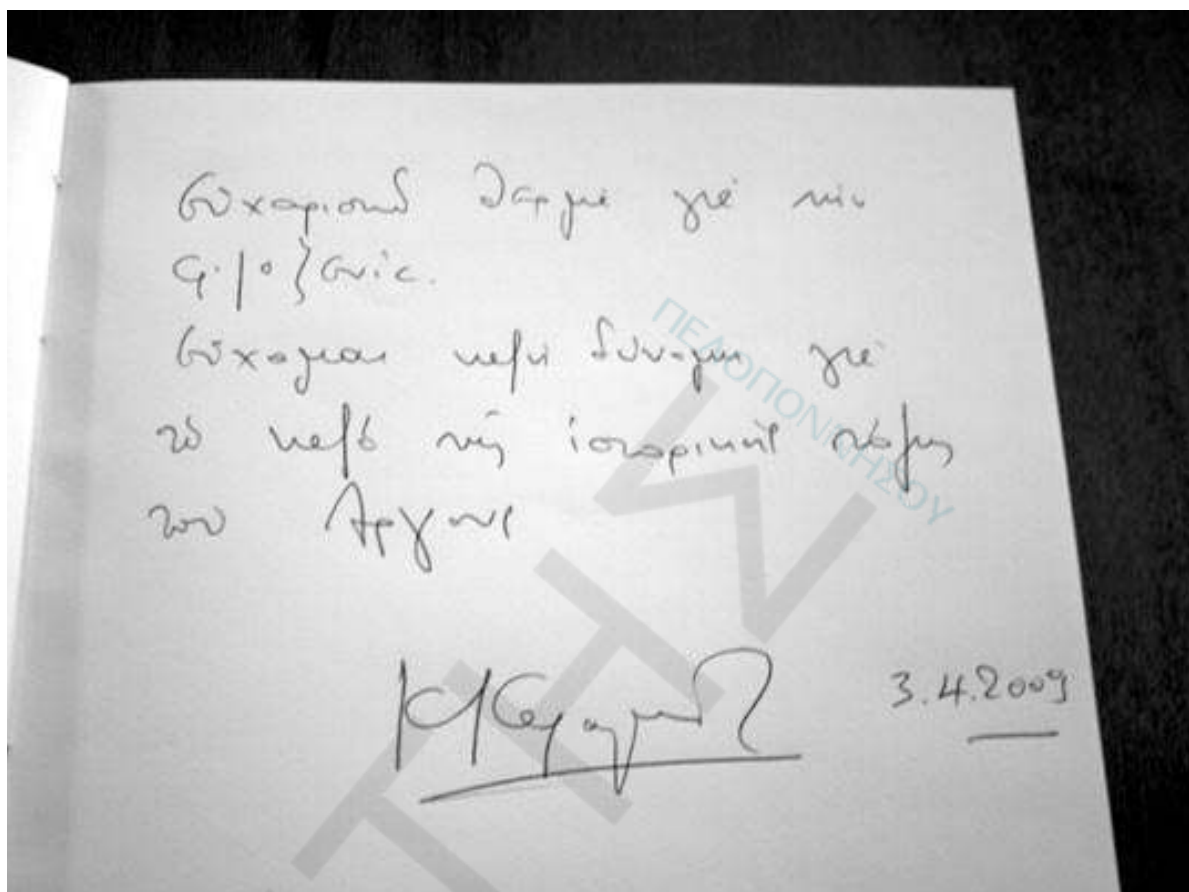 Εὐχαριστῶ θερμά γιά τήν
φιλοξενία.
Εὔχομαι καλή δύναμη γιά
τό καλό τῆς ἱστορικῆς πόλης
του Άργους
3.4.2009
ΠΕΛΟΠΟΝΝΗΣΟΥ
ΤΗΣ